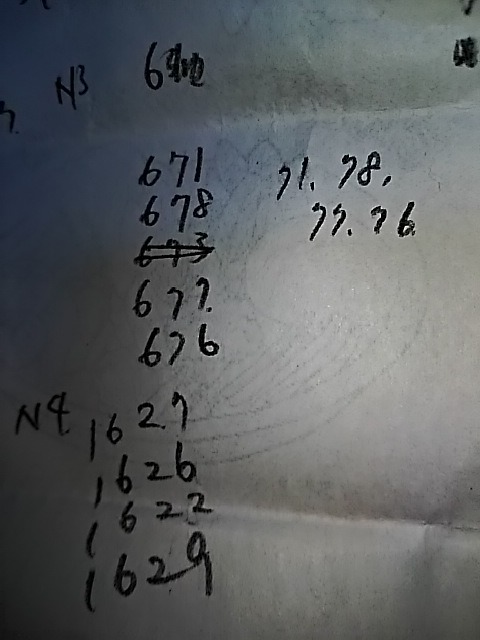 N3 6
671 71. 78.
678 77. 76
673
677.
676
N4 1627
1626
1622
1629